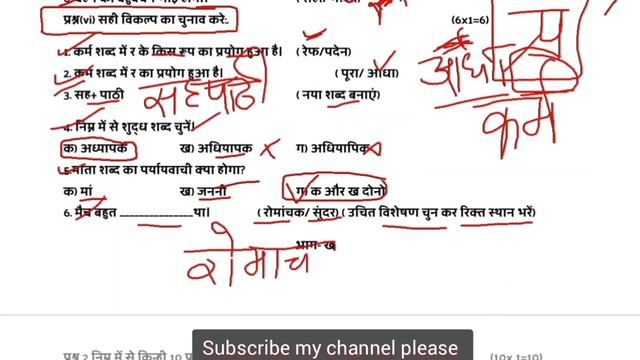 प्रश्न(vi) सही विकल्प का चुनाव करे:-
(6x1=6)
1. कर्म शब्द में र के किस रूप का प्रयोग हुआ है। ( रेफ/पदेन)
2. कर्म शब्द में र का प्रयोग हुआ है। ( पूरा/ आधा)
3. सह+ पाठी ( नया शब्द बनाएं)
सहपाठी
कर्म
4. निम्न में से शुद्ध शब्द चुनें।
क) अध्यापक ख) अधियापक ग) अधियापिक
5. माता शब्द का पर्यायवाची क्या होगा?
क) मां ख) जननी ग) क और ख दोनों
6. मैच बहुत ______________ था। ( रोमांचक/ सुंदर) ( उचित विशेषण चुन कर रिक्त स्थान भरें)
भाग- ख
रोमाच
प्रश्न 2 निम्न में से किन्ही 10 (10x 1=10)
Subscribe my channel please